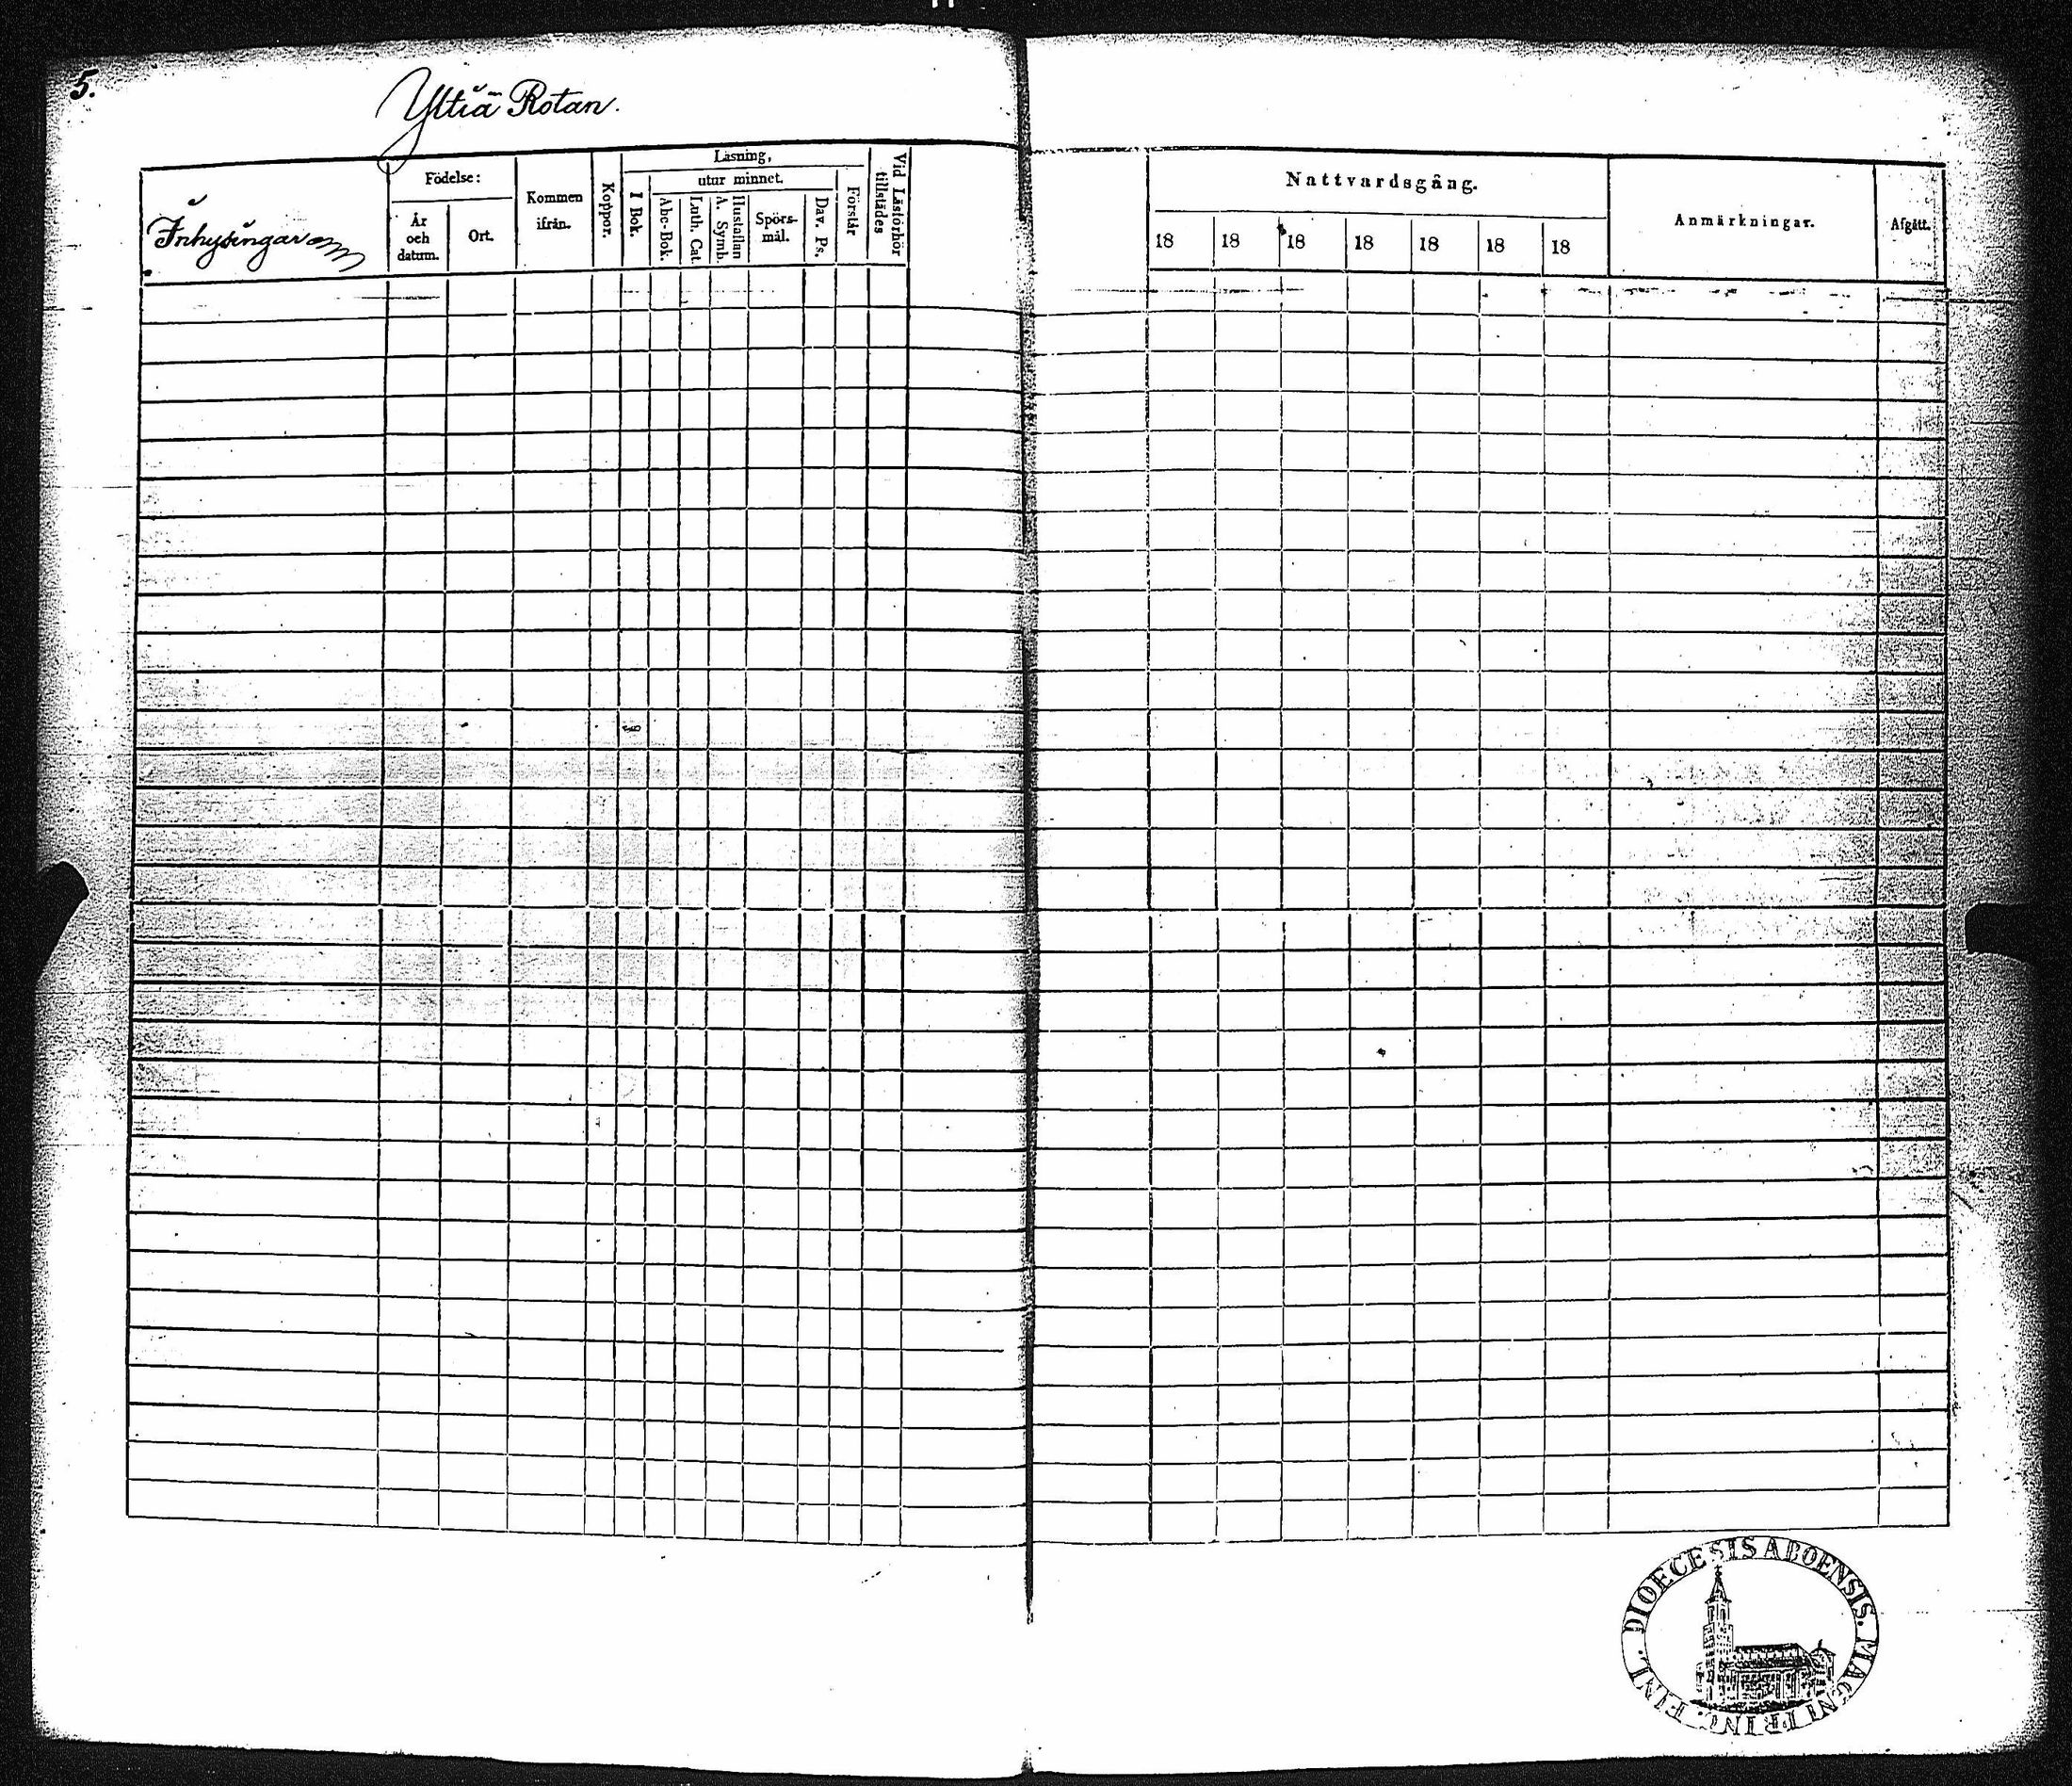 5.
Yltiä Rotan.
Inhysingar
Födelse:
År och datum.
Ort.
Kommen ifrån.
Koppor.
Läsning,
I Bok.
utur minnet.
Abc-Bok.
Luth. Cat.
Hustaflan A. Symb.
Spörs-mål.
Dav. Ps.
Förstår
Vid Läsförhör tillstädes
Nattvardsgång.
18 18 18 18 18 18 18
Anmärkningar.
Afgått.
DIOECESIS ABOENSIS. MAGNI PRINC. FINL.